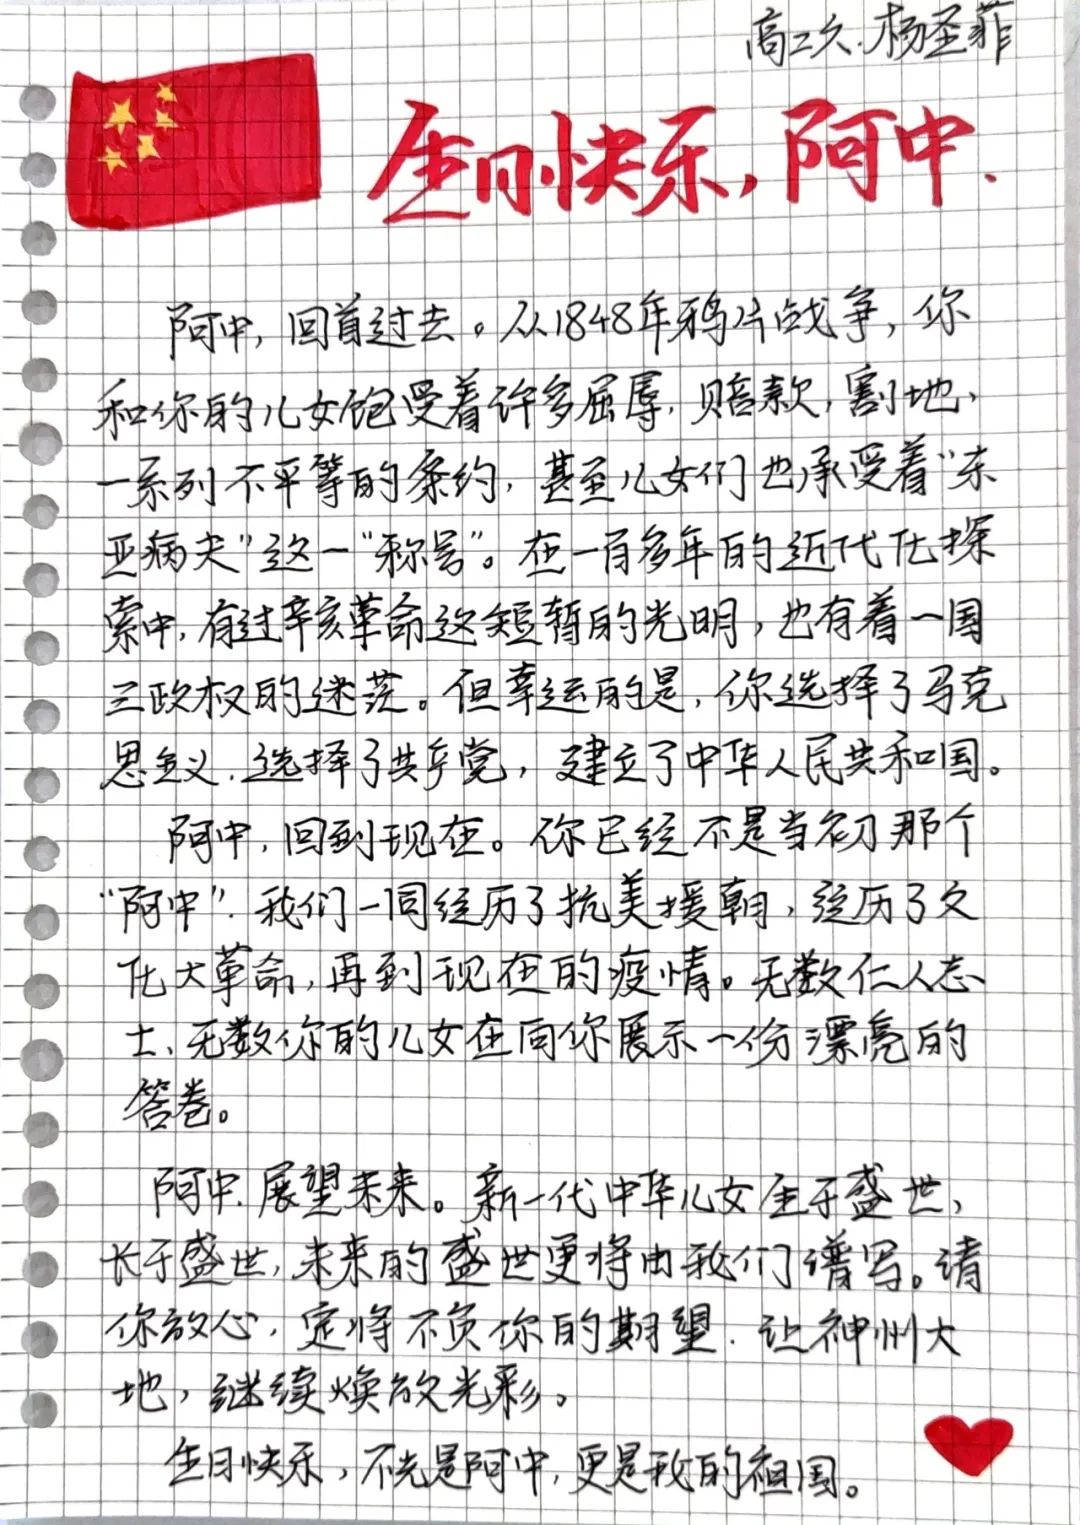 高二久.杨圣菲
生日快乐,阿中.
阿中,回首过去。从1848年鸦片战争,你
和你的儿女饱受着许多屈辱,赔款,割地,
一系列不平等的条约,甚至儿女们也承受着“东
亚病夫”这一“称号”。在一百多年的近代化探
索中,有过辛亥革命这短暂的光明,也有着一国
三政权的迷茫。但幸运的是,你选择了马克
思主义.选择了共产党,建立了中华人民共和国。
阿中,回到现在。你已经不是当初那个
“阿中”.我们一同经历了抗美援朝,经历了文
化大革命,再到现在的疫情。无数仁人志
士、无数你的儿女在向你展示一份漂亮的
答卷。
阿中.展望未来。新一代中华儿女生于盛世,
长于盛世,未来的盛世更将由我们谱写。请
你放心,定将不负你的期望.让神州大
地,继续焕放光彩。
生日快乐,不光是阿中,更是我的祖国。